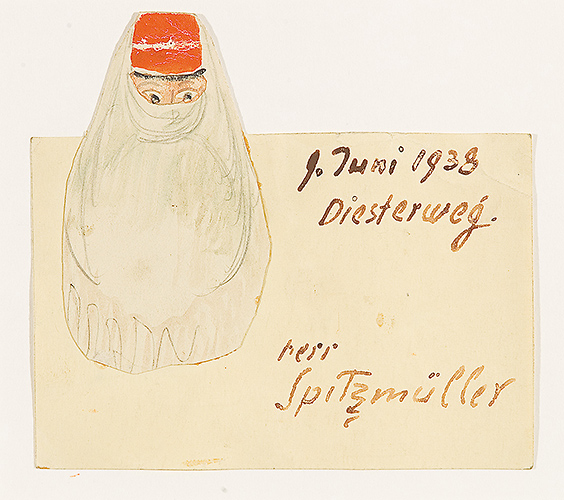 9. Juni 1938
Diesterweg.
herr
Spitzmüller